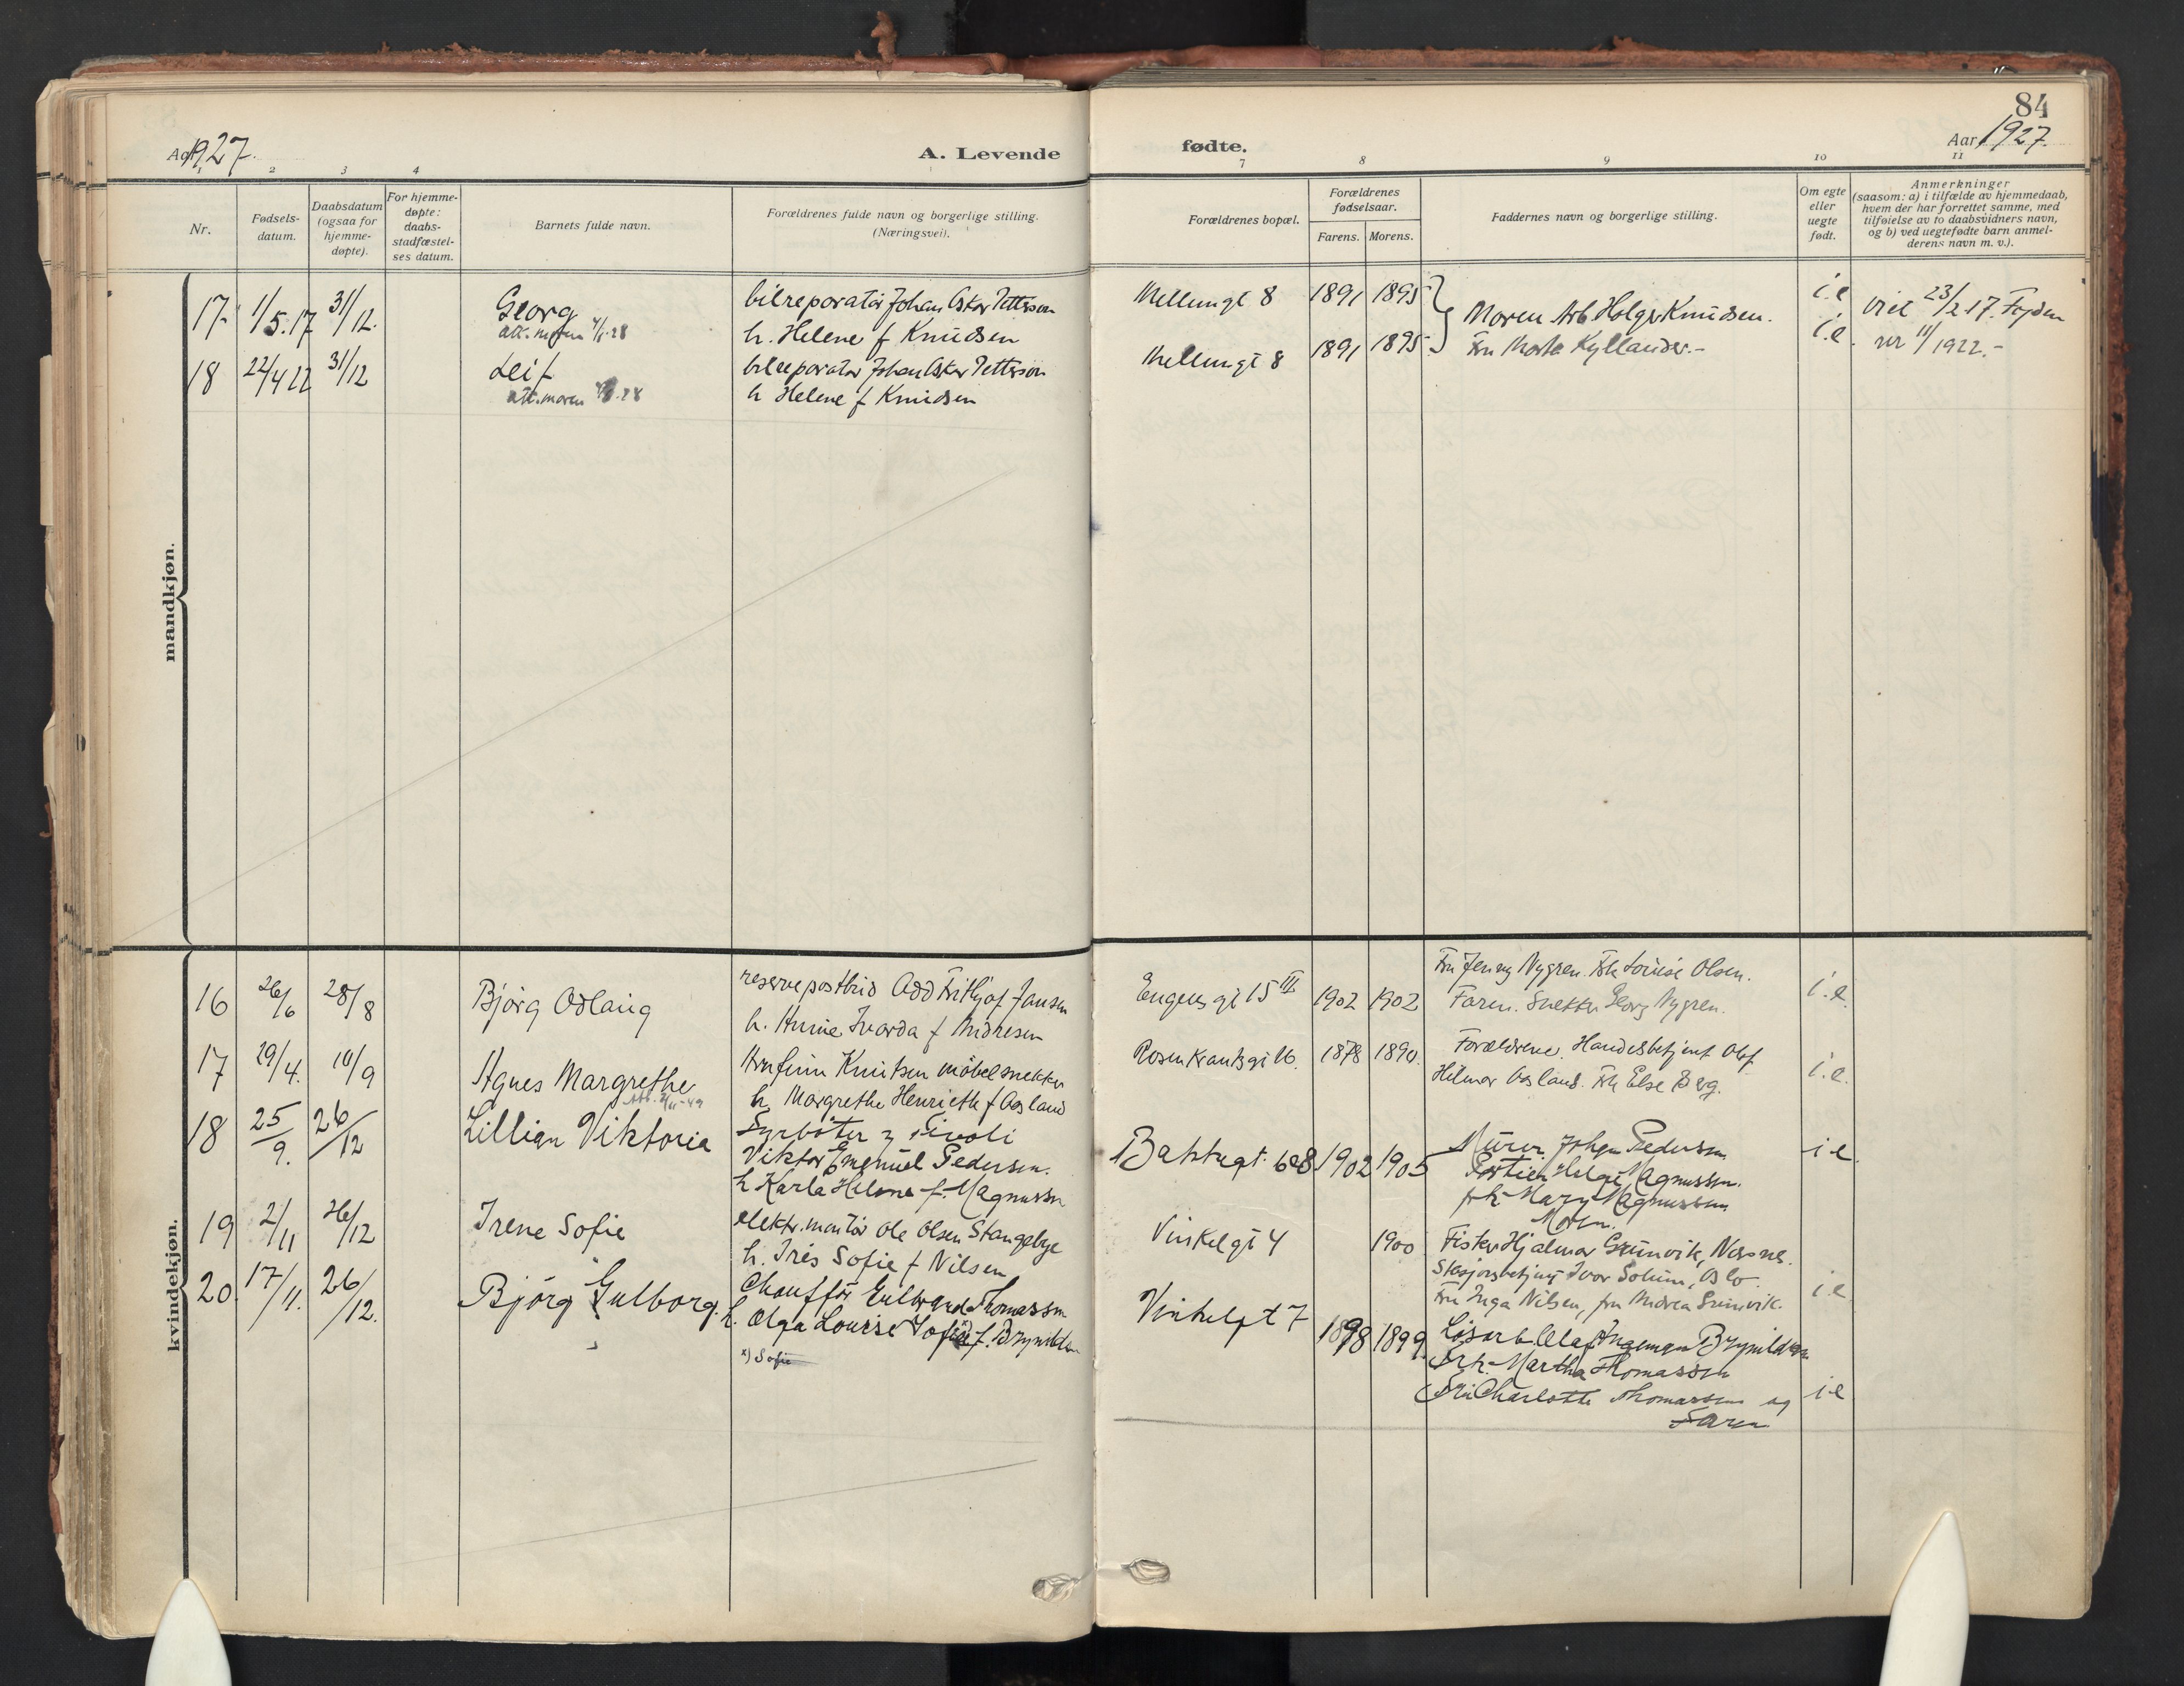 84
Aar 1927.
A. Levende
fødte.
Aar 1927.
1 2 3 4 7 8 9 10 11
Nr.
Fødsels-
datum.
Daabsdatum
(ogsaa for
hjemme-
døpte).
For hjemme-
døpte:
daabs-
stadfæstel-
ses datum.
Barnets fulde navn.
Forældrenes fulde navn og borgerlige stilling.
(Næringsvei).
Forældrenes bopæl.
Forældrenes
fødselsaar.
Farens. Morens.
Faddernes navn og borgerlige stilling.
Om egte
eller
uegte
født.
Anmerkninger
(saasom: a) i tilfælde av hjemmedaab,
hvem der har forrettet samme, med
tilføielse av to daabsvidners navn,
og b) ved uegtefødte barn anmel-
derens navn m. v.).
mandkjøn.
17 1/5.17 31/12. Georg bilreparatør Johan Oskar Petterson Mellumgt 8 1891 1895 i.e viet 23/2 17.
att. moren 4/1-28 h. Helene f Knudsen Moren Arb Holger Knudsen.
18 22/4 22 31/12 Leif bilreparatør Johan Oskar Petterson Mellumgt 8 1891 1895 Fru Marta Kyllander.- i.e. 1922.-
att. moren 28 h Helene f Knudsen
kvindekjøn.
16 26/6 28/8 Bjørg Odlaug reservepostbud Odd Frithjof Jansen Engensgt 15 III 1902 1902 Fru Jenny Nygren. Frk Louise Olsen. i.e.
h. Anine Ivarda f Andresen Faren. Snekker Georg Nygren.
17 29/4. 10/9 Agnes Margrethe Arnfinn Knutsen møbelsnekker Rosenkrantsgt 16. 1878 1890. Forældrene. Handelsbetjent Olaf i.e.
h. Margrethe Henriette f Aasland Hilmar Aasland. Frk Else Berg.
18 25/9. 26/12 Lillian Viktoria Fyrbøter Tivoli
Viktor Emanuel Pedersen. Bakkegt. 1902 1905 Murer Johan Pedersen i e.
h Karla Helene f. Magnussen Helge Magnussen.
frk Mary Magnussen
Moren.
19 2/11 26/12 Irene Sofie elektr. montør Ole Olsen Stangebye Vinkelgt 4 1900 Fisker Hjalmar Grimvik, Nesnes.
h. Iris Sofie f Nilsen Stasjonsbetjent Ivar Solum, Oslo. i e.
Fru Inga Nilsen, fru Andrea Grimvik.
20. 17/11. 26/12. Bjørg Gulborg. Chauffør Edward Thomassen Vinkelgt 7 1898 1899. Løsarb. Olaf Ingeman Brynildsen
h. Olga Lourse Sofie f. Brynildsen Frk. Martha Thomassen
x) Sofie Fru Charlotte Thomassen og i e
Faren